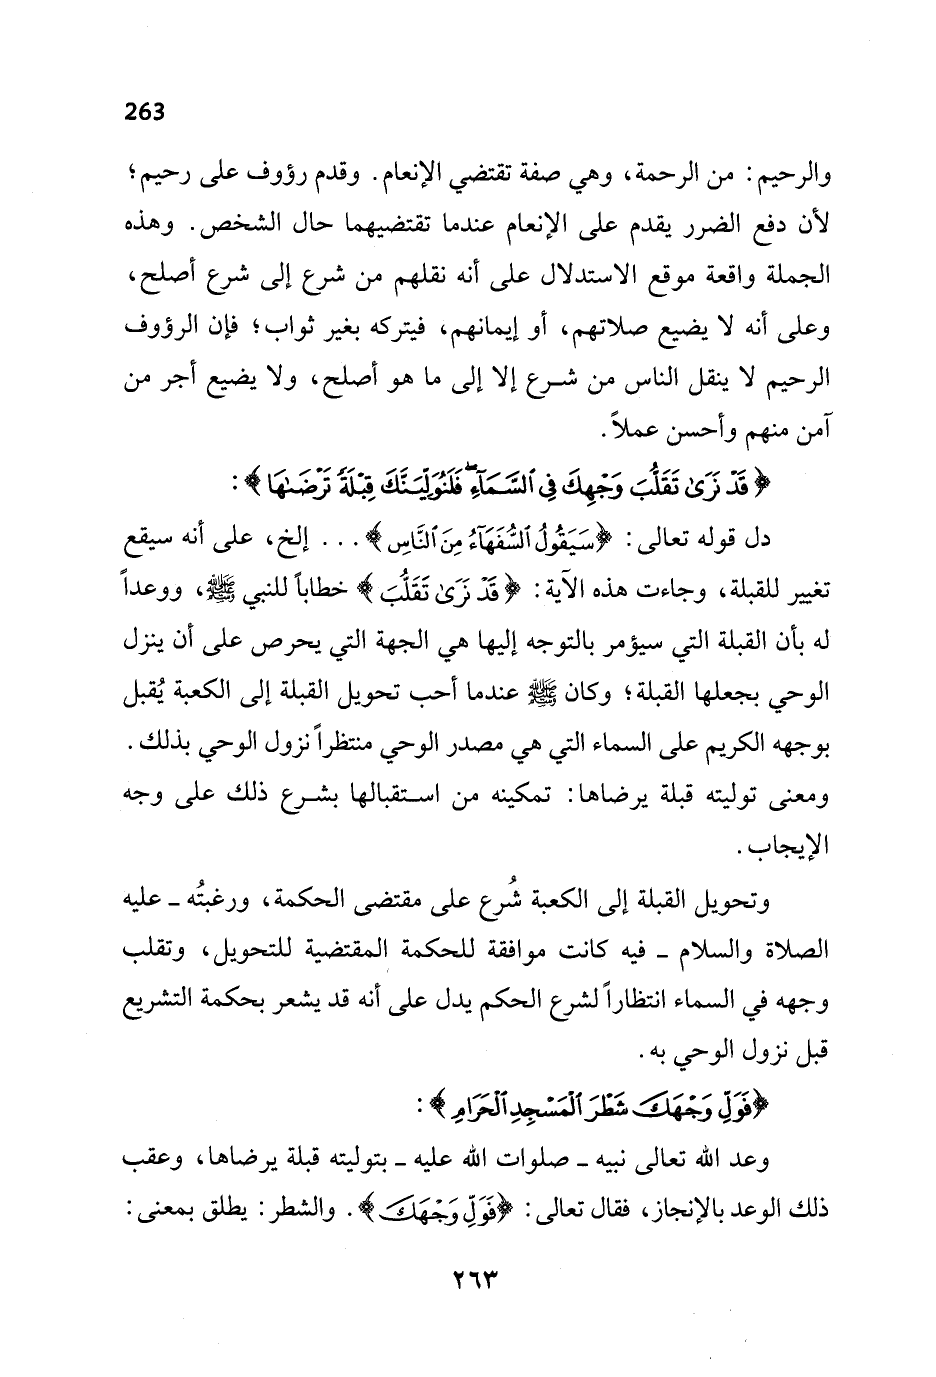 263
والرحيم: من الرحمة، وهي صفة تقتضي الإنعام. وقدم رؤوف على رحيم؛
لأن دفع الضرر يقدم على الإنعام عندما تقتضيهما حال الشخص. وهذه
الجملة واقعة موقع الاستدلال على أنه نقلهم من شرع إلى شرع أصلح،
وعلى أنه لا يضيع صلاتهم، أو إيمانهم، فيتركه بغير ثواب؛ فإن الرؤوف
الرحيم لا ينقل الناس من شرع إلا إلى ما هو أصلح، ولا يضيع أجر من
آمن منهم وأحسن عملاً.
﴿قَدْ نَرَىٰ تَقَلُّبَ وَجْهِكَ فِى ٱلسَّمَآءِ ۖ فَلَنُوَلِّيَنَّكَ قِبْلَةً تَرْضَىٰهَا﴾:
دل قوله تعالى: ﴿سَيَقُولُ ٱلسُّفَهَآءُ مِنَ ٱلنَّاسِ﴾... إلخ، على أنه سيقع
تغيير للقبلة، وجاءت هذه الآية: ﴿قَدْ نَرَىٰ تَقَلُّبَ﴾ خطاباً للنبي ﷺ، ووعداً
له بأن القبلة التي سيؤمر بالتوجه إليها هي الجهة التي يحرص على أن ينزل
الوحي بجعلها القبلة؛ وكان ﷺ عندما أحب تحويل القبلة إلى الكعبة يُقبل
بوجهه الكريم على السماء التي هي مصدر الوحي منتظراً نزول الوحي بذلك.
ومعنى توليته قبلة يرضاها: تمكينه من استقبالها بشرع ذلك على وجه
الإيجاب.
وتحويل القبلة إلى الكعبة شُرع على مقتضى الحكمة، ورغبتُه ـ عليه
الصلاة والسلام ـ فيه كانت موافقة للحكمة المقتضية للتحويل، وتقلب
وجهه في السماء انتظاراً لشرع الحكم يدل على أنه قد يشعر بحكمة التشريع
قبل نزول الوحي به.
﴿فَوَلِّ وَجْهَكَ شَطْرَ ٱلْمَسْجِدِ ٱلْحَرَامِ﴾:
وعد الله تعالى نبيه ـ صلوات الله عليه ـ بتوليته قبلة يرضاها، وعقب
ذلك الوعد بالإنجاز، فقال تعالى: ﴿فَوَلِّ وَجْهَكَ﴾. والشطر: يطلق بمعنى:
٢٦٣